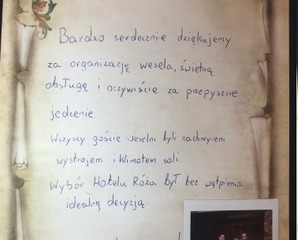 Bardzo serdecznie dziękujemy
za organizację wesela, świetną
obsługę i oczywiście za przepyszne
jedzenie.
Wszyscy goście weselni byli zachwyceni
wystrojem i klimatem sali.
Wybór Hotelu Róża był bez wątpienia
idealną decyzją